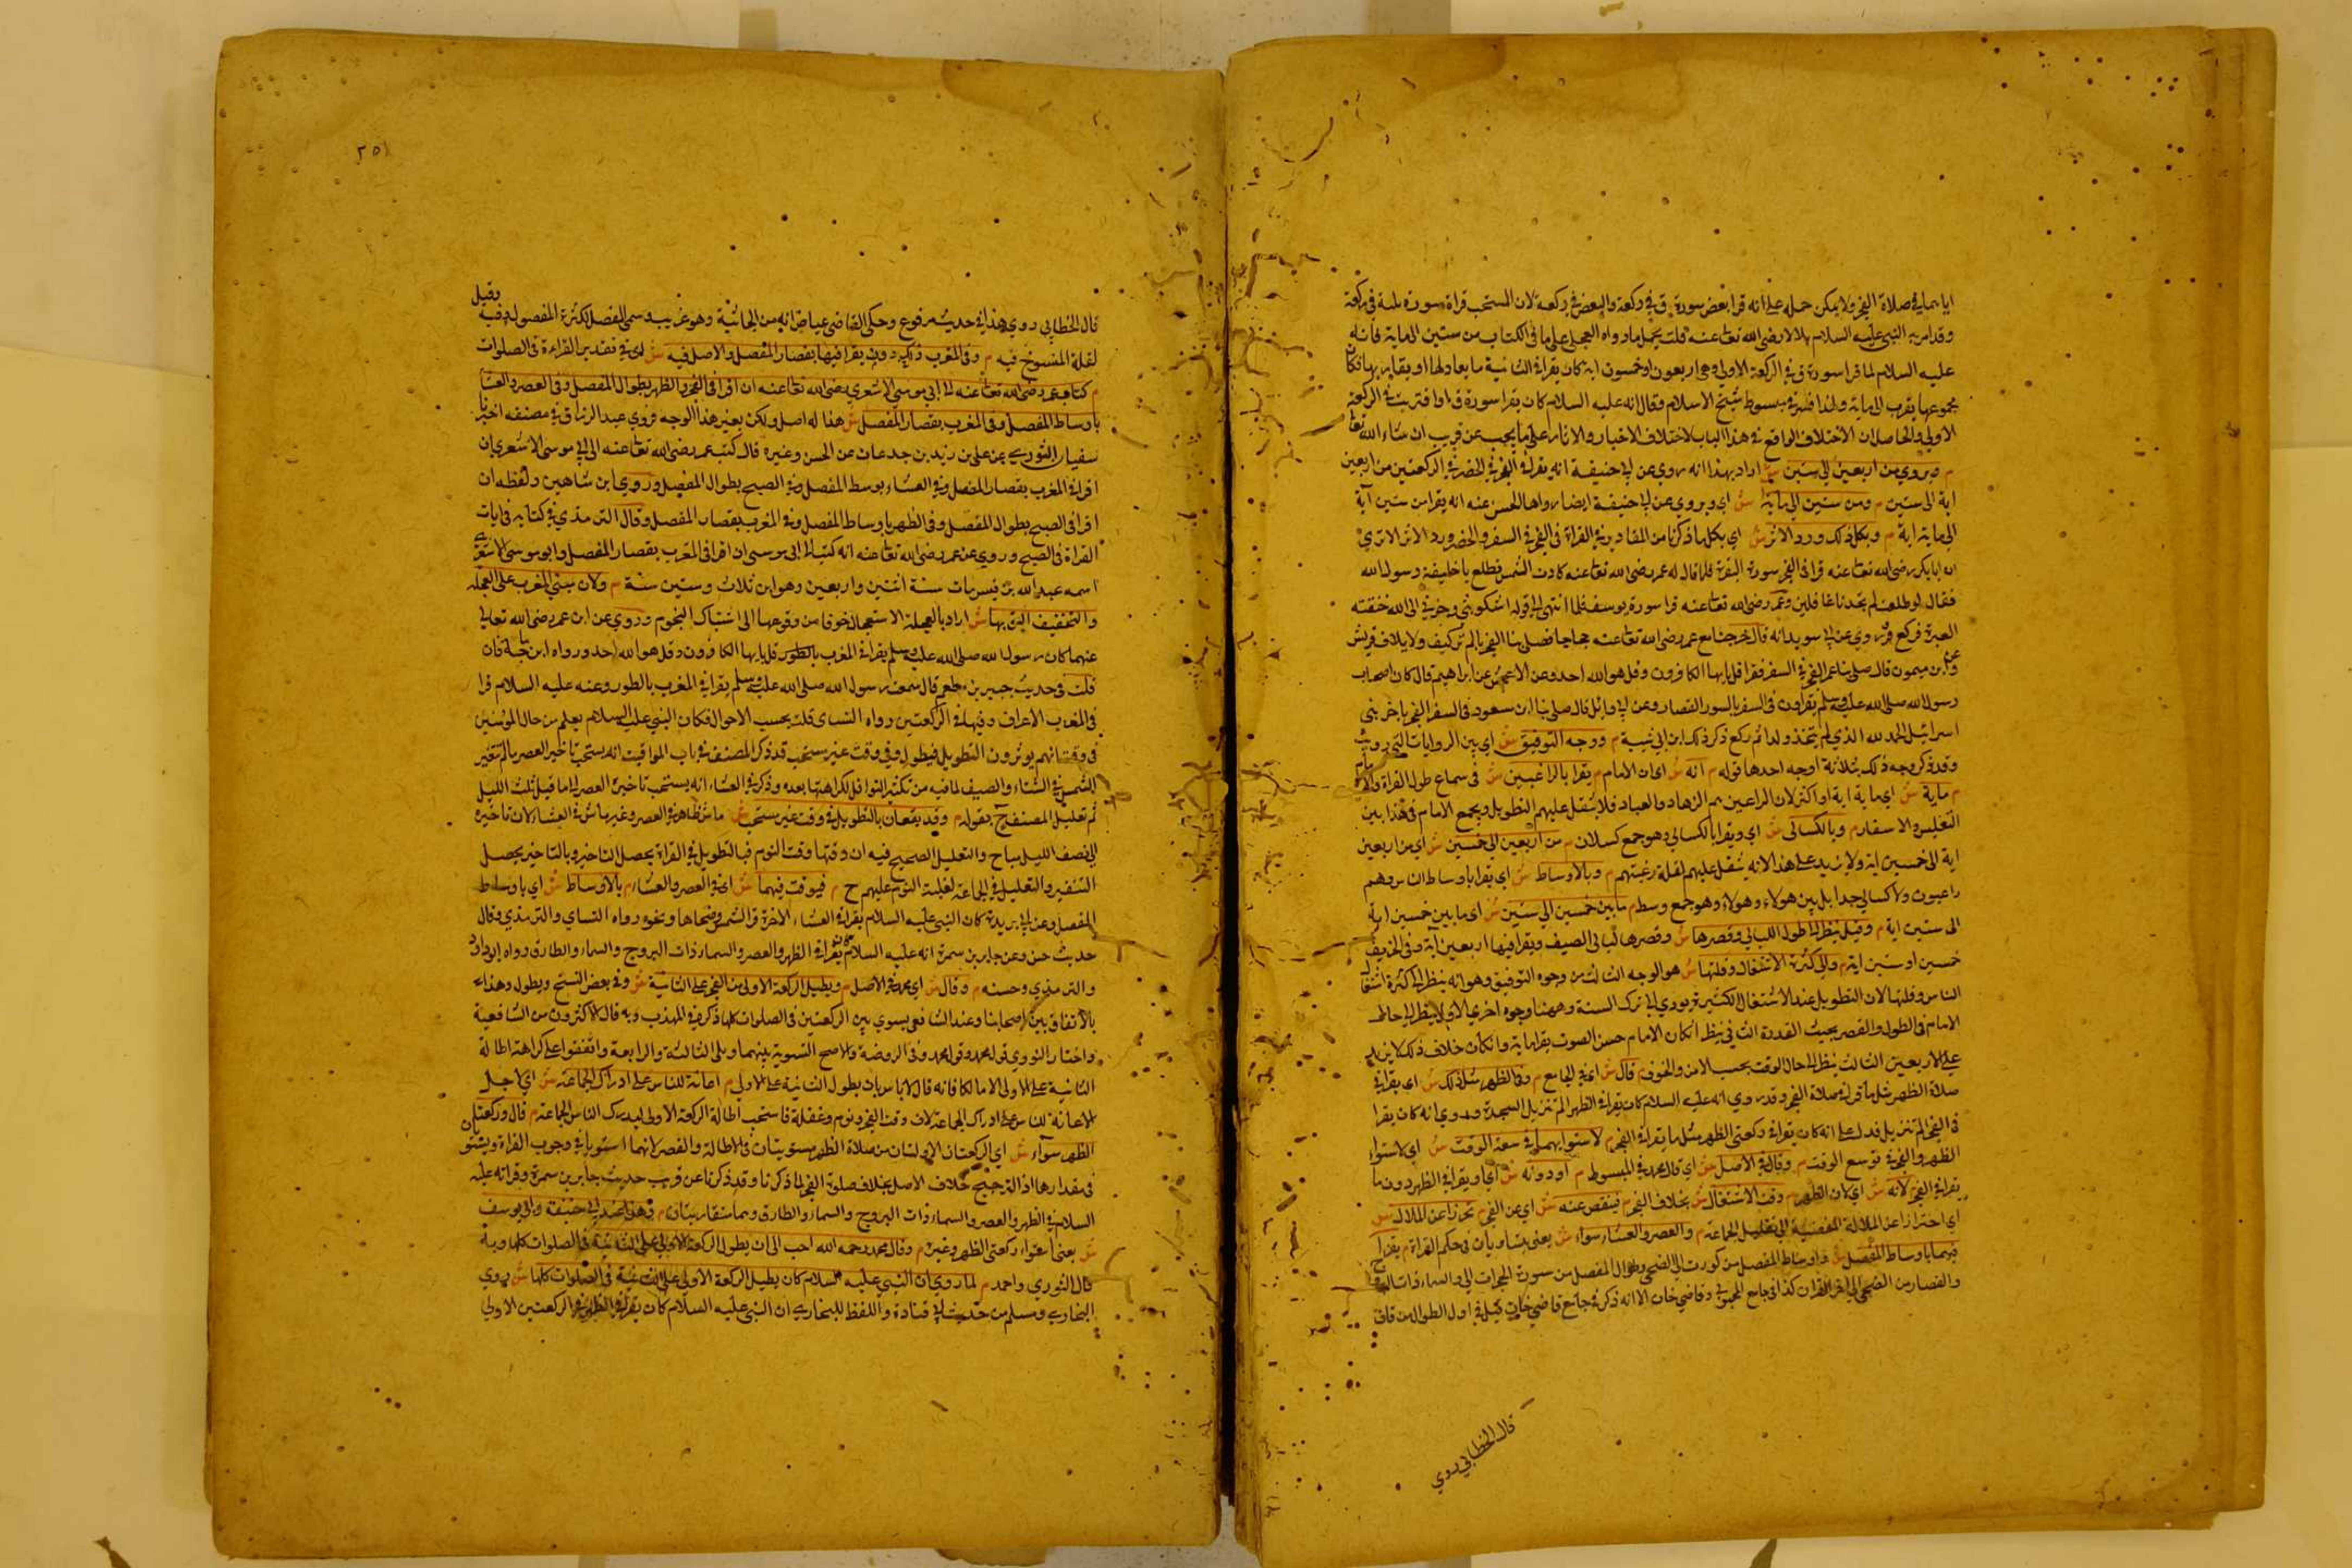 ايا بهما في صلاة الفجر ولا يمكن حمله على انه قرا بعض سورة ق في ركعة والبعض في ركعة لان المستحب قراة سورة تامة في ركعة
وقد امر به النبي عليه السلام بلالا رضي الله تعا عنه قلت يحمل ما رواه العجلي على ما في الكتاب من ستين الى ماية فانه
عليه السلام لما قرا سورة ق في الركعة الاولى وهي اربعون او خمسون اية كان يقرا في الثانية ما يعادلها او يقاربها فكان
مجموعها يقرب الى ماية ولهذا في مبسوط شيخ الاسلام وقال انه عليه السلام كان يقرا سورة ق او اقتربت في الركعة
الاولى والحاصل ان الاختلاف الواقع في هذا الباب لاختلاف الاخبار والاثار على ما يجيء عن قريب ان شاء الله تعا
م ويروى من اربعين الى ستين ش اراد بهذا انه روي عن ابي حنيفة انه يقرا في الفجر في الحضر في الركعتين من اربعين
اية الى ستين م ومن ستين الى ماية ش اي ويروى عن ابي حنيفة ايضا رواها الحسن عنه انه يقرا من ستين آية
الى ماية اية م وبكل ذلك ورد الاثر ش اي بكل ما ذكرنا من المقادير في القراة في الفجر في السفر والحضر ورد الاثر الا ترى
ان ابا بكر رضي الله تعا عنه قرا في الفجر سورة البقرة فلما قال له عمر رضي الله تعا عنه كادت الشمس تطلع يا خليفة رسول الله
فقال لو طلعت لم تجدنا غافلين وعمر رضي الله تعا عنه قرا سورة يوسف فلما انتهى الى قوله اشكو بثي وحزني الى الله خنقته
العبرة فركع وروي عن ابي سويد انه قال خرجنا مع عمر رضي الله تعا عنه حجاجا فصلى بنا الفجر بالم تر كيف ولايلاف قريش
وعن ابن ميمون قال صلى بنا عمر الفجر في السفر فقرا قل يا يها الكافرون وقل هو الله احد وعن الاعمش عن ابراهيم قال كان اصحاب
رسول الله صلى الله عليه وسلم يقراون في السفر بالسور القصار وعن ابي وايل قال صلى بنا ابن مسعود في السفر الفجر باخر بني
اسرائيل الحمد لله الذي لم يتخذ ولدا ثم ركع ذكر ذلك ابن ابي شيبة م ووجه التوفيق ش اي بين الروايات التي رويت
وقد ذكر وجه ذلك بثلاثة اوجه احدها قوله م انه ش اي ان الامام م يقرا بالراغبين ش في سماع طول القراة
م ماية ش اي ماية اية او اكثر لان الراغبين هم الزهاد والعباد فلا يثقل عليهم التطويل ويجمع الامام في هذا بين
التغليس والاسفار م وبالكسالى ش اي ويقرا بالكسالى وهو جمع كسلان م من اربعين الى خمسين ش اي من اربعين
اية الى خمسين اية ولا يزيد على هذا لانه يثقل عليهم لقلة رغبتهم م وبالاوساط ش اي يقرا باوساط الناس وهم
راغبون ولا كسالى جدا بل بين هولاء وهولاء وهو جمع وسط م ما بين خمسين الى ستين ش اي ما بين خمسين اية
الى ستين اية م وقيل ينظر الى طول الليالي وقصرها ش وقصرها ليالي الصيف ويقرا فيها اربعين آية وفي الخريف
خمسين او ستين اية م والى كثرة الاشتغال وقلتها ش هو الوجه الثالث من وجوه التوفيق وهو انه ينظر الى كثرة اشتغال
الناس وقلتها لان التطويل عند الاشتغال الكثيرة يودي الى ترك السنة وههنا وجوه اخرى الاول ينظر الى حال
الامام في الطول والقصر بحيث القدرة الثاني ينظر ان كان الامام حسن الصوت يقرا ماية وان كان خلاف ذلك لا يزيد
على الاربعين الثالث ينظر الى حال الوقت بحسب الامن والخوف م قال ش اي في الجامع م وفي الظهر مثل ذلك ش اي يقرا في
صلاة الظهر مثل ما قرا في صلاة الفجر وقد روي انه عليه السلام كان يقرا في الظهر الم تنزيل السجدة وروي انه كان يقرا
في الفجر الم تنزيل فدل على انه كان يقرا في ركعتي الظهر مثل ما يقرا في الفجر م لاستوائهما في سعة الوقت ش اي لاستواء
الظهر والفجر في توسع الوقت م وقال في الاصل ش اي قال محمد في المبسوط م او دونه ش اي او يقرا في الظهر دون ما
يقرا في الفجر لانه ش اي لان الظهر م وقت الاشتغال ش بخلاف الفجر م فينقص عنه ش اي عن الفجر م تحرزا عن الملال ش
اي احترازا عن الملالة المفضية الى تقليل الجماعة م والعصر والعشاء سواء ش يعني يتساويان في حكم القراة م يقرا
فيهما باوساط المفصل ش واوساط المفصل من كورت الى الضحى وطوال المفصل من سورة الحجرات الى والسماء ذات البروج
والقصار من الضحى الى اخر القران كذا في جامع المحبوبي وقاضي خان الا انه ذكر في جامع قاضي خان قيل في اول الطوال من قاف
قال الخطابي روي
٢٥١
قال الخطابي روي هذا في حديث مرفوع وحكى القاضي عياض انه من الجاثية وهو غريب وسمي المفصل لكثرة الفصول فيه وقيل
لقلة المنسوخ فيه م وفي المغرب دون ذلك يقرا فيها بقصار المفصل والاصل فيه ش اي في تقدير القراءة في الصلوات
م كتاب عمر رضي الله تعا عنه الى ابي موسى الاشعري رضي الله تعا عنه ان اقرا في الفجر والظهر بطوال المفصل وفي العصر والعشا
باوساط المفصل وفي المغرب بقصار المفصل ش هذا له اصل ولكن بغير هذا الوجه فروى عبد الرزاق في مصنفه اخبرنا
سفيان الثوري عن علي بن زيد بن جدعان عن الحسن وغيره قال كتب عمر رضي الله تعا عنه الى ابي موسى الاشعري ان
اقرا في المغرب بقصار المفصل وفي العشاء بوسط المفصل وفي الصبح بطوال المفصل وروى ابن شاهين ولفظه ان
اقرا في الصبح بطوال المفصل وفي الظهر باوساط المفصل وفي المغرب بقصار المفصل وقال الترمذي في كتابه في باب
القراة في الصبح وروي عن عمر رضي الله تعا عنه انه كتب الى ابي موسى ان اقرا في المغرب بقصار المفصل وابو موسى الاشعري
اسمه عبد الله بن قيس مات سنة اثنتين واربعين وهو ابن ثلاث وستين سنة م ولان مبنى المغرب على العجلة
والتخفيف اليق بها ش اراد بالعجلة الاستعجال خوفا من وقوعها الى اشتباك النجوم وروي عن ابن عمر رضي الله تعالى
عنهما كان رسول الله صلى الله عليه وسلم يقرا في المغرب بالطور قل يا يها الكافرون وقل هو الله احد ورواه ابن ماجة فان
قلت في حديث جبير بن مطعم قال سمعت رسول الله صلى الله عليه وسلم يقرا في المغرب بالطور وعنه عليه السلام قرا
في المغرب الاعراف وفيها في الركعتين رواه النساي قلت بحسب الاحوال فكان النبي عليه السلام يعلم من حال المؤمنين
في وقت انهم يوثرون التطويل فيطول وفي وقت غير مستحب قد ذكر المصنف في باب المواقيت انه يستحب تاخير العصر ما لم تتغير
الشمس في الشتاء والصيف لما فيه من تكثير النوافل لكراهتها بعده وذكر في العشاء انه يستحب تاخيره العصر الى ما قبل ثلث الليل
ثم تعليل المصنف بقوله م وقد يقعان بالتطويل في وقت غير مستحب ش ماش ظاهر في العصر وغير ماش في العشاء لان تاخيره
الى نصف الليل مباح والتعليل الصحيح فيه ان وقتها وقت النوم فبالتطويل في القراة يحصل التاخير وبالتاخير يحصل
التنفير والتقليل في الجماعة لغلبة النوم عليهم ح م فيوقت فيهما ش اي في العصر والعشاء م بالاوساط ش اي باوساط
المفصل وعن ابي بريدة كان النبي عليه السلام يقرا في العشاء الاخرة قرا الشمس وضحاها ونحوه رواه النساي والترمذي وقال
حديث حسن وعن جابر بن سمرة انه عليه السلام كان يقرا في الظهر والعصر والسماء ذات البروج والسماء والطارق رواه ابو داود
والترمذي وحسنه م وقال ش اي محمد في الاصل م ويطيل الركعة الاولى من الفجر على الثانية ش وفي بعض النسخ ويطول وهذا
بالاتفاق بين اصحابنا وعند الشافعي يسوي بين الركعتين في الصلوات كلها ذكره في المهذب وبه قال الاكثرون من الشافعية
واختار النووي قول محمد وقول محمد وفي الروضة والاصح التسوية بينهما وبين الثالثة والرابعة واتفقوا على كراهة اطالة
الثانية على الاولى الا مالكا فانه قال لا باس بان يطول الثانية على الاولى م اعانة للناس على ادراك الجماعة ش اي لاجل
الاعانة للناس على ادراك الجماعة لان وقت الفجر وقت نوم وغفلة فاستحب اطالة الركعة الاولى ليدرك الناس الجماعة م قال وركعتا
الظهر سوآء ش اي الركعتان الاوليان من صلاة الظهر مستويتان في الاطالة والقصر لانهما استويا في وجوب القراة ويستويان
في مقدارها اذ الترجيح خلاف الاصل بخلاف صلوة الفجر لما ذكرنا وقد ذكرنا عن قريب حديث جابر بن سمرة وقراته عليه
السلام في الظهر والعصر والسماء ذات البروج والسماء والطارق وهما متقاربتان م وهذا عند ابي حنيفة وابي يوسف
ش يعني استواء ركعتي الظهر وغيره م وقال محمد رحمه الله احب الي ان يطول الركعة الاولى على الثانية في الصلوات كلها وبه
قال الثوري واحمد م لما روي ان النبي عليه السلام كان يطيل الركعة الاولى على الثانية في الصلوات كلها ش روى
البخاري ومسلم من حديث ابي قتادة واللفظ للبخاري ان النبي عليه السلام كان يقرا في الظهر في الركعتين الاولى